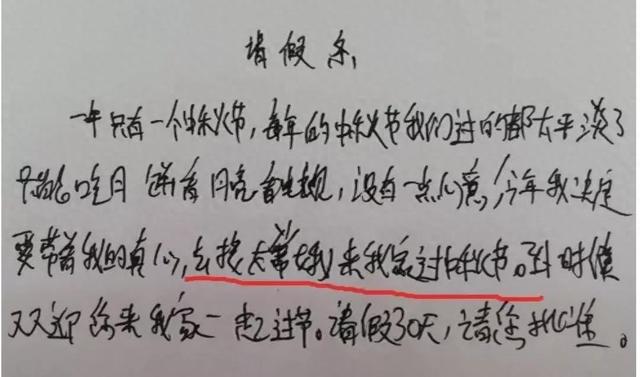 请假条
一年只有一个中秋节,每年的中秋节我们过的都太平淡了
只能吃月饼看月亮看电视,没有一点心意,今年我决定
要带着我的真心,去找大嫦娥来我家过中秋节。到时候
欢迎你来我家一起过节。请假30天,请您批准。